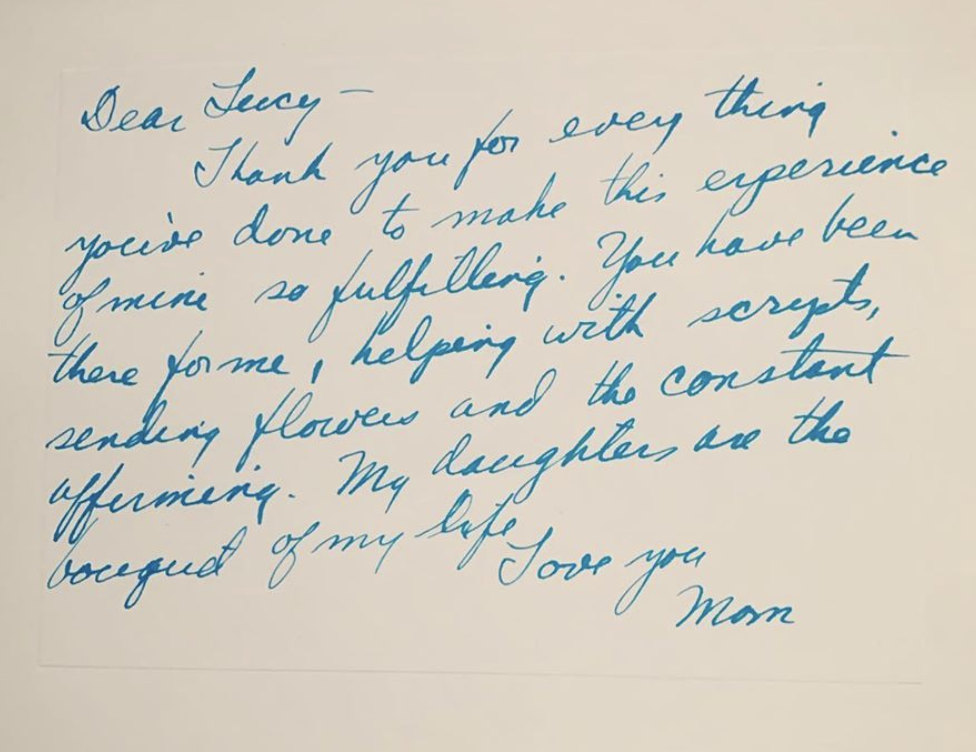 Dear Lucy —
Thank you for every thing
you've done to make this experience
of mine so fulfilling. You have been
there for me, helping with scripts,
sending flowers and the constant
affirming. My daughters are the
bouquet of my life
Love you
Mom